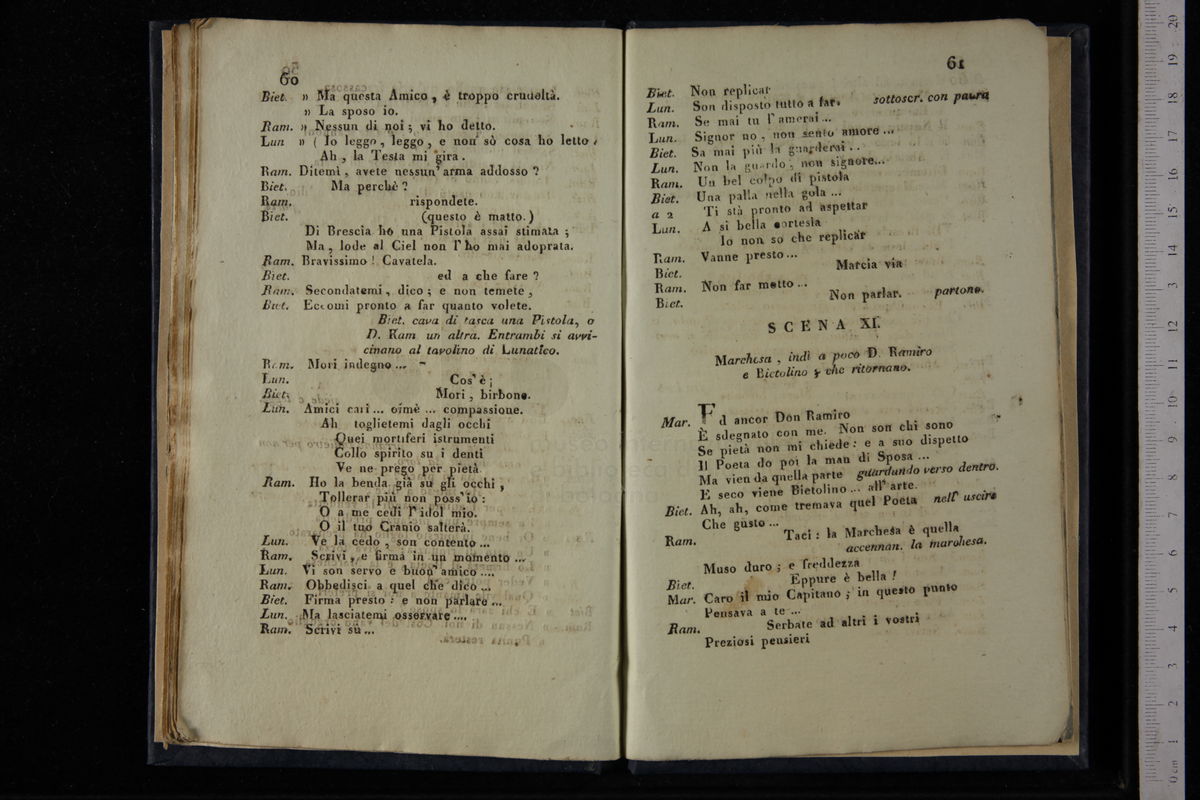 60
Biet. » Ma questa Amico, è troppo crudeltà.
» La sposo io.
Ram. » Nessun di noi; vi ho detto.
Lun » ( Io leggo, leggo, e non sò cosa ho letto,
Ah, la Testa mi gira.
Ram. Ditemi, avete nessun' arma addosso?
Biet. Ma perchè?
Ram. rispondete.
Biet. (questo è matto.)
Di Brescia ho una Pistola assai stimata;
Ma, lode al Ciel non l'ho mai adoprata.
Ram. Bravissimo! Cavatela.
Biet. ed a che fare?
Ram. Secondatemi, dico; e non temete,
Biet. Eccomi pronto a far quanto volete.
Biet. cava di tasca una Pistola, o
D. Ram un altra. Entrambi si avvi-
cinano al tavolino di Lunatico.
Ram. Mori indegno ...
Lun. Cos' è;
Biet. Mori, birbone.
Lun. Amici cari ... oimè ... compassione.
Ah toglietemi dagli occhi
Quei mortiferi istrumenti
Collo spirito su i denti
Ve ne prego per pietà.
Ram. Ho la benda già su gli occhi,
Tollerar più non poss' io:
O a me cedi l' idol mio.
O il tuo Cranio salterà.
Lun. Ve la cedo, son contento ...
Ram. Scrivi, e firma in un momento ...
Lun. Vi son servo e buon' amico ....
Ram. Obbedisci a quel che dico ...
Biet. Firma presto: e non parlare ...
Lun. Ma lasciatemi osservare ....
Ram. Scrivi su ...
61
Biet. Non replicar
Lun. Son disposto tutto a far. sottoscr. con paura
Ram. Se mai tu l' amerai ...
Lun. Signor no, non sento amore ...
Biet. Sa mai più la guarderai ..
Lun. Non la guardo, non signore...
Ram. Un bel colpo di pistola
Biet. Una palla nella gola ...
a 2 Ti stà pronto ad aspettar
Lun. A sì bella cortesia
Io non so che replicar
Ram. Vanne presto ...
Biet. Marcia via
Ram. Non far motto ...
Biet. Non parlar. partono.
SCENA XI.
Marchesa, indi a poco D. Ramiro
e Bietolino, che ritornano.
Mar. Ed ancor Don Ramiro
È sdegnato con me. Non son chi sono
Se pietà non mi chiede: e a suo dispetto
Il Poeta do poi la man di Sposa ...
Ma vien da quella parte guardando verso dentro.
E seco viene Bietolino ... all' arte.
Biet. Ah, ah, come tremava quel Poeta nell' uscire
Che gusto ...
Ram. Taci: la Marchesa è quella
accennan. la marchesa.
Muso duro; e freddezza
Biet. Eppure è bella!
Mar. Caro il mio Capitano; in questo punto
Pensava a te ...
Ram. Serbate ad altri i vostri
Preziosi pensieri